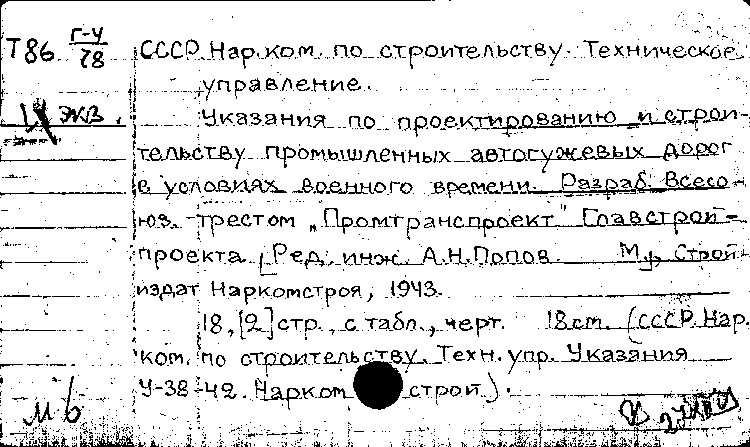 Т86 Г-4/78
СССР. Нар. ком. по строительству. Техническое
управление.
Указания по проектированию и строи-
экз.
тельству промышленных автогужевых дорог
в условиях военного времени. Разраб. Всесо-
юз. трестом „Промтранспроект" Главстрой-
проекта. Ред. инж. А.Н.Попов. М., Строй-
издат Наркомстроя, 1943.
18,[2] стр., с табл., черт. 18 см. (СССР. Нар.
ком. по строительству. Техн. упр. Указания
У-38-42. Нарком строй).
м б